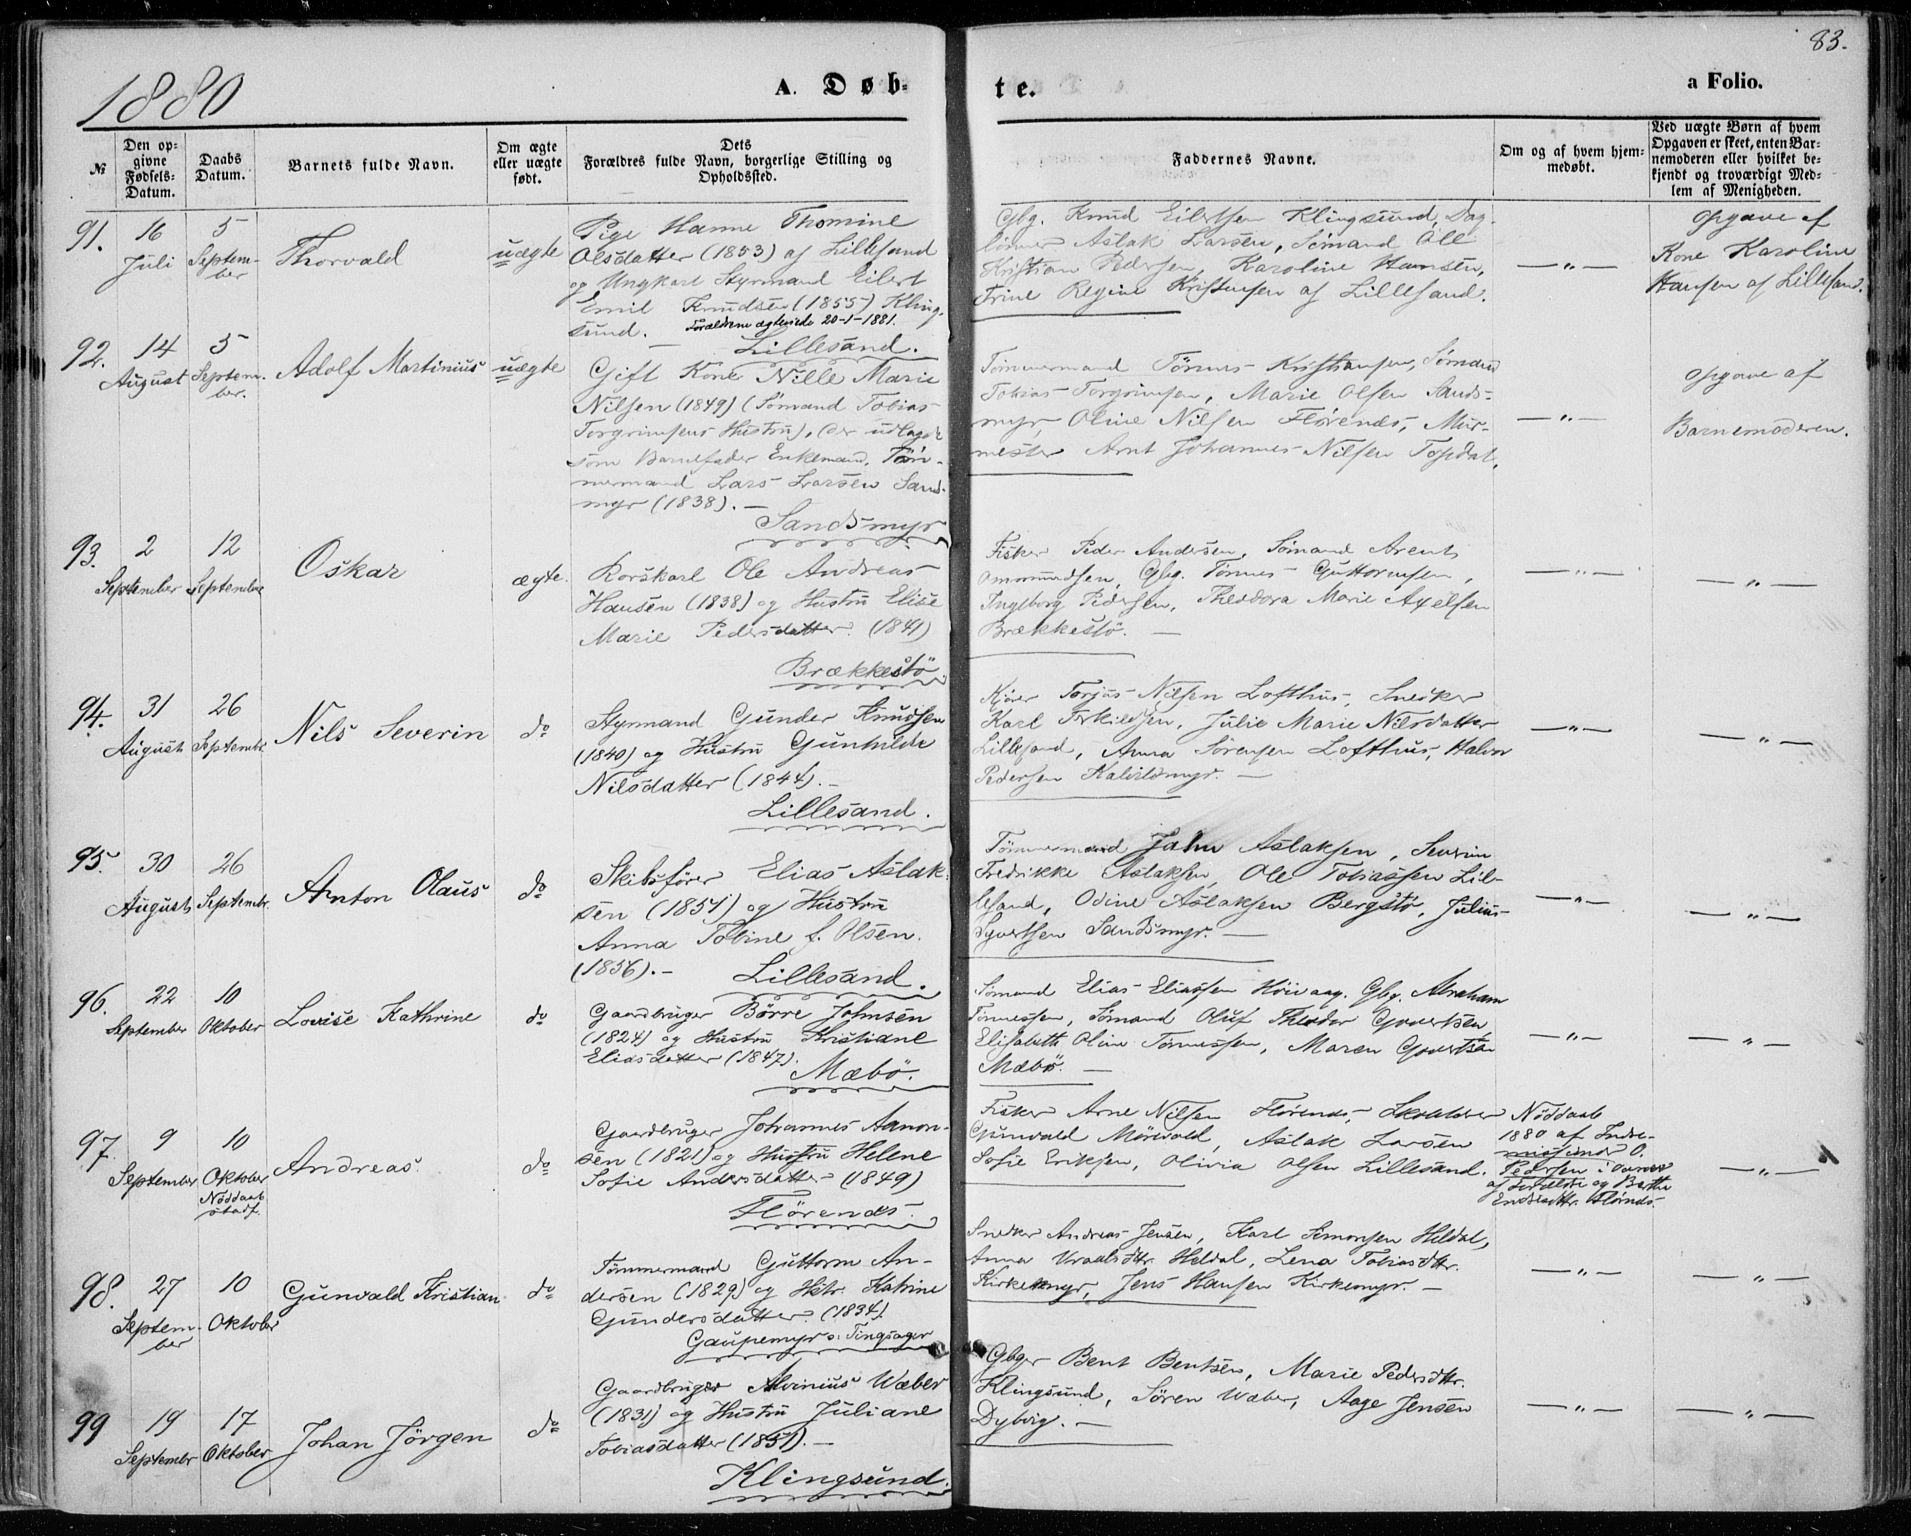 83.
1880
A. Døb-
te.
a Folio.
№
Den op-
givne
Fødsels-
Datum.
Daabs
Datum.
Barnets fulde Navn.
Om ægte
eller uægte
født.
Dets
Forældres fulde Navn, borgerlige Stilling og
Opholdssted.
Faddernes Navne.
Om og af hvem hjem-
medøbt.
Ved uægte Børn af hvem
Opgaven er skeet, enten Bar-
nemoderen eller hvilket be-
kjendt og troværdigt Med-
lem af Menigheden.
91.
16
Juli
5
Septem-
ber
Thorvald
uægte
Pige Hanne Thomine
Olsdatter (1853) af Lillesand
og Ungkarl Styrmand Eilert
Emil Knudsen (1855) Kling-
sund. Forældrene ægteviede 20-1-1881.
Lillesand.
Gbg. Knud Eilertsen Klingsund, Dag-
lönner Aslak Larsen, Sömand Ole
Kristian Pedersen, Karoline Hansen,
Trine Regine Kristensen af Lillesand.
— " —
Opgave af
Kone Karoline
Hansen af Lillesand.
92.
14
August
5
Septem-
ber.
Adolf Martinius
uægte
Gift Kone Nille Marie
Nilsen (1849) (Sömand Tobias
Torgrimsens Hustru), der udlagde
som Barnefader Enkemand, Töm-
mermand Lars Larsen Sands-
myr (1838). —
Sandsmyr
Tömmermand Tönnes Kristiansen, Sömand
Tobias Torgrimsen, Marie Olsen Sands-
myr Oline Nilsen Flörenes, Mur-
mester Arnt Johannes Nilsen Topdal.
— " —
Opgave af
Barnemoderen.
93.
2
September
12
September
Oskar
ægte.
Korskarl Ole Andreas
Hansen (1838) og Hustru Elise
Marie Pedersdatter. (1841)
Brækkestö
Fisker Peder Andersen, Sömand Arent
Omomundsen, Gbg. Tönnes Guttormsen,
Ingeborg Pedersen, Theodora Marie Axelsen
Brækkestö. —
— " —
— " —
94.
31
August
26
Septembr.
Nils Severin
do
Styrmand Gunder Knudsen
(1840) og Hustru Gunhilde
Nilsdatter (1844). —
Lillesand.
Kjörer Torjus Nilsen Lofthus, Snedker
Karl Terkildsen, Julie Marie Nilsdatter
Lillesand, Anna Sörensen Lofthus, Halvor
Pedersen Kalvildmyr. —
— " —
— " —
95.
30
August
26
Septembr.
Anton Olaus
do
Skibsförer Elias Aslak-
sen (1851) og Hustru
Anna Tobine f. Olsen.
(1856). —
Lillesand.
Tömmermand Jahn Aslaksen, Severin
Fredrikke Aslaksen, Ole Tobiassen Lil-
lesand, Odine Aslaksen Bergstö, Julius
Syvertsen Sandsmyr. —
— " —
— " —
96.
22
September
10
Oktober
Lovise Kathrine
do
Gaardbruger Börre Johnsen
(1824) og Hustru Kristiane
Eliasdatter (1847).
Mæbö.
Sömand Elias Eliassen Höivaag. Gbg. Abraham
Tönnessen, Sömand Oluf Theodor Govertsen
Elisabeth Oline Tönnessen, Maren Govertsen
Mæbö. —
— " —
— " —
97.
9
September
10
Oktober
Nöddaab
stadf.
Andreas.
do
Gaardbruger Johannes Aanon-
sen (1821) og Hustru Helene
Sofie Andersdatter (1849)
Flörenes.
Fisker Arne Nilsen Flörenes, Skoleholder
Gunvald Mörevold, Aslak Larsen
Sofie Eriksen, Olivia Olsen Lillesand.
Nöddaab
1880 af Indre-
missionær O.
Pedersen i Overvær
af Forældre og Berthe
Endresdtr. Flörenes.
— " —
98.
27
Septem-
ber
10
Oktober
Gunvald Kristian
do
Tömmermand Guttorm An-
dersen (1829) og Hstr. Katrine
Gundersdatter. (1834).
Gaupemyr o: Tingsager
Snedker Andreas Jensen, Karl Simonsen Heldal,
Anna Vraalsdtr. Heldal, Lena Tobiasdtr.
Kirkemyr, Jens Hansen Kirkemyr. —
— " —
— " —
99
19
Septembr
17
Oktober
Johan Jörgen
do
Gaardbruger Alvinius Wæber
(1831) og Hustru Juliane
Tobiasdatter (1851). —
Klingsund.
Gbger Bent Bentsen, Marie Pedersdtr.
Klingsund, Sören Wæber, Aage Jensen
Dybvig. —
— " —
— " —